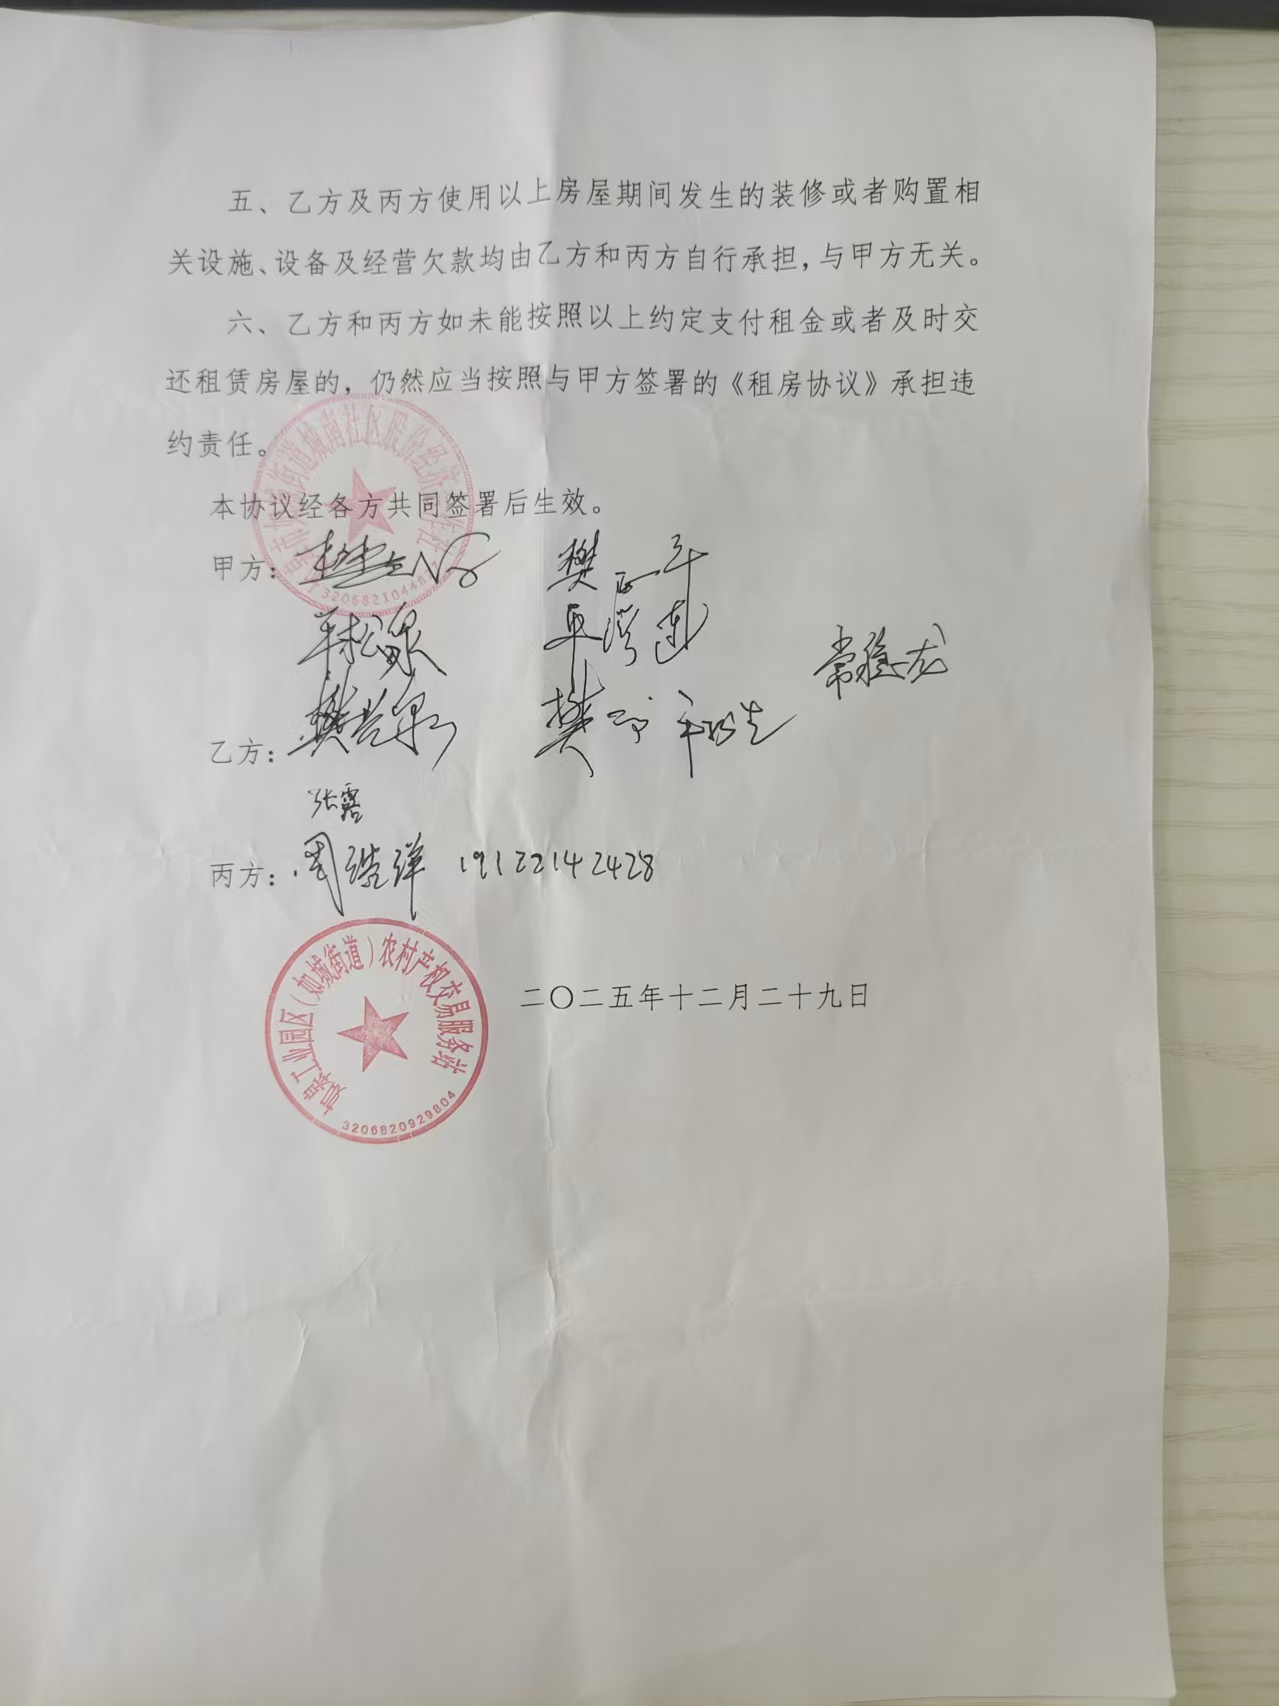 五、乙方及丙方使用以上房屋期间发生的装修或者购置相
关设施、设备及经营欠款均由乙方和丙方自行承担,与甲方无关。
六、乙方和丙方如未能按照以上约定支付租金或者及时交
还租赁房屋的,仍然应当按照与甲方签署的《租房协议》承担违
约责任。
本协议经各方共同签署后生效。
街道城南社区股份经济合作社
甲方:
乙方:
张露
丙方:周浩洋 19122142428
二〇二五年十二月二十九日
如皋工业园区(如城街道)农村产权交易服务站
3206820929804